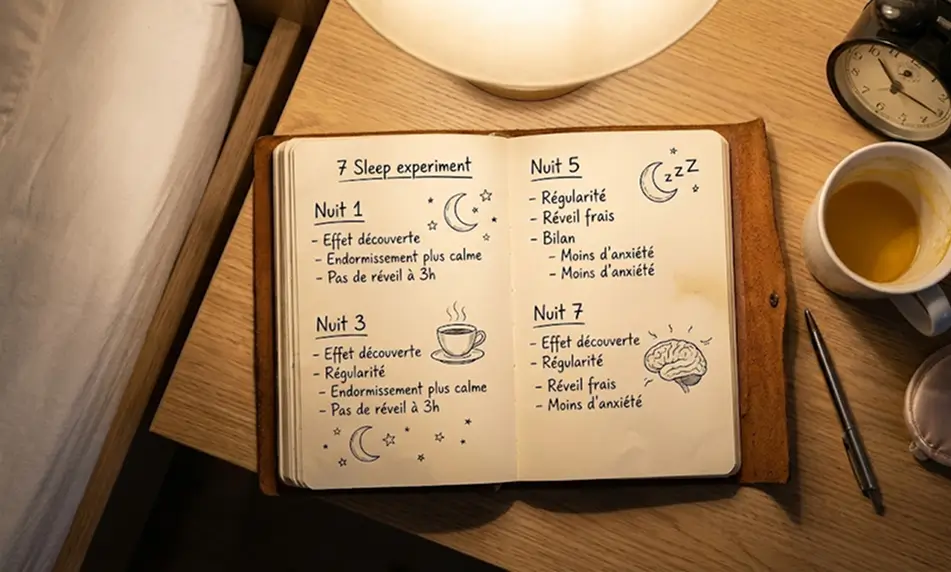 7 Sleep experiment
Nuit 1
- Effet découverte
- Endormissement plus calme
- Pas de réveil à 3h
Nuit 3
- Effet découverte
- Régularité
- Endormissement plus calme
- Pas de réveil à 3h
Nuit 5
zzZ
- Régularité
- Réveil frais
- Bilan
- Moins d'anxiété
- Moins d'anxiété
Nuit 7
- Effet découverte
- Régularité
- Réveil frais
- Moins d'anxiété